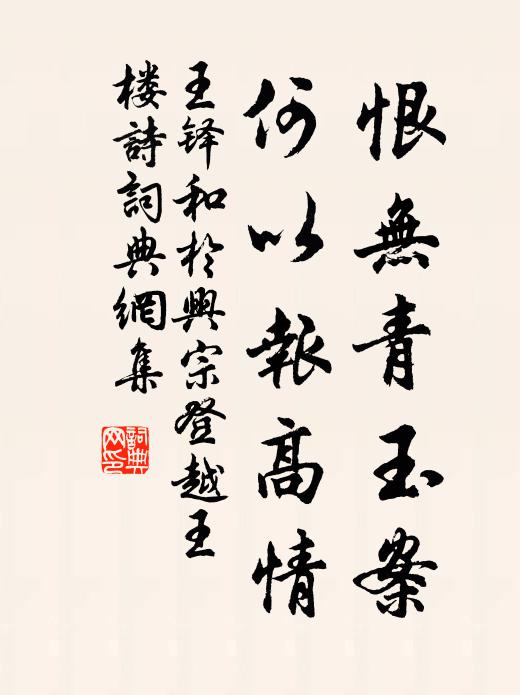 恨無青玉案
何以報高情
王铎和於興宗登越王
楼詩詞典網集
詞典
网印